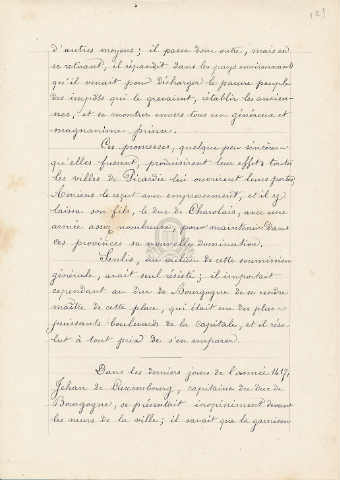 d'autres moyens ; il passa donc outre, mais en
se retirant, il répandit dans les pays environnants
qu'il venait pour décharger le pauvre peuple
des impôts qui le grevaient, rétablir les ancien-
nes, et se montrer envers tous un généreux et
magnanime prince.
Ces promesses, quelque peu sincères
qu'elles fussent, produisirent leur effet ; toutes
les villes de Picardie lui ouvrirent leurs portes,
Amiens le reçut avec empressement, et il y
laissa son fils, le duc de Charolais, avec une
armée assez nombreuse, pour maintenir dans
ces provinces sa nouvelle domination.
Senlis, au milieu de cette soumission
générale, avait seul résisté ; il importait
cependant au duc de Bourgogne de se rendre
maître de cette place, qui était un des plus
puissants boulevards de la capitale, et il réso-
lut à tout prix de s'en emparer.
Dans les derniers jours de l'année 1417,
Jehan de Luxembourg, capitaine du duc de
Bourgogne, se présentait inopinément devant
les murs de la ville ; il savait que la garnison